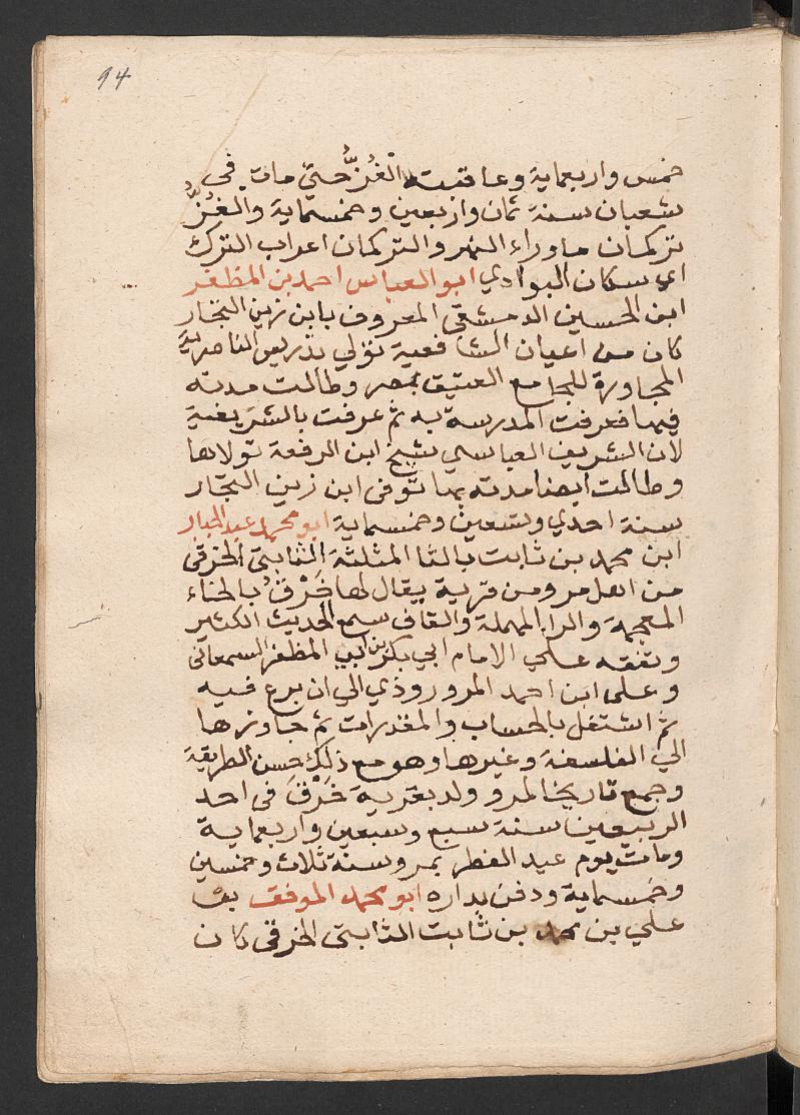 94
خمس واربعماية وعاقبته الغُزُّ حتي مات في
شعبان سنة ثمان واربعين وخمسماية والغُزُّ
تركمان ماوراء النهر والتركمان اعراب الترك
اي سكان البوادي ابو العباس احمد بن المظفر
ابن الحسين الدمشقي المعروف بابن زين التجار
كان من اعيان الشافعية تولي تدريس الناصرية
المجاورة للجامع العتيق بمصر وطالت مدته
فيها فعرفت المدرسة به ثم عرفت بالشريفية
لان الشريف العباسي شيخ ابن الرفعة تولاها
وطالت ايضا مدته بها توفى ابن زين التجار
سنة احدي وتسعين وخمسماية ابو محمد عبد الجبار
ابن محمد بن ثابت بالثا المثلثة الثابتى الخرقى
من اهل مرو من قرية يقال لها خَرْقُ بالخاء
المعجمة والرا المهملة والقاف سمع الحديث الكثير
وتفقه علي الامام ابي بكر بن ابي المظفر السمعانى
وعلى ابن احمد المروروذي الي ان برع فيه
ثم اشتغل بالحساب والمقدرات ثم جاوزها
الي الفلسفة وغيرها وهو مع ذلك حسن الطريقة
وجمع تاريخا لمرو ولد بقرية خَرْقَ فى احد
الربيعين سنة سبع وسبعين واربعماية
ومات يوم عيد الفطر بمرو سنة ثلاث وخمسين
وخمسماية ودفن بداره ابو محمد الموفق بن
علي بن محمد بن ثابت الثابتى الخرقى كان